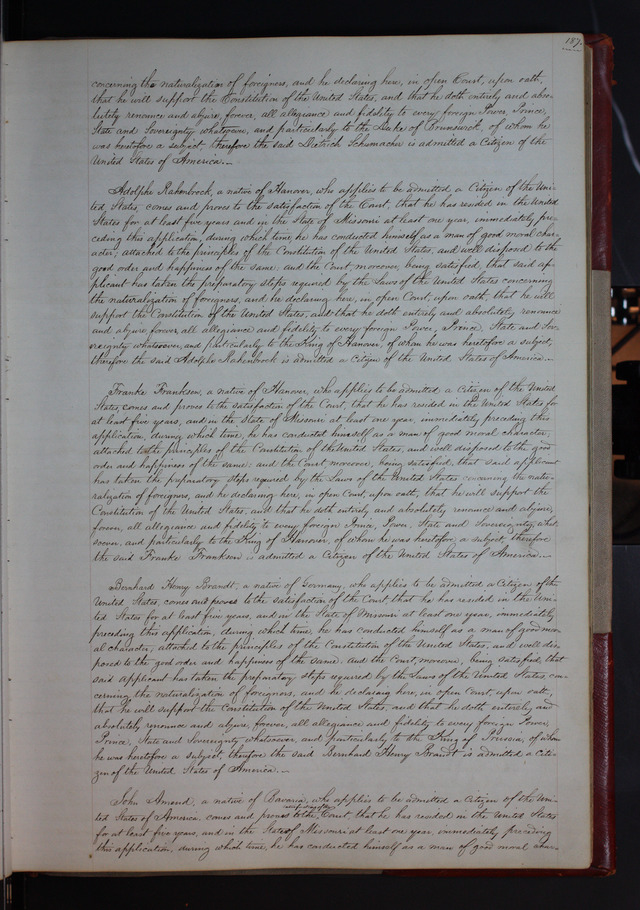 187.
concerning the naturalization of foreigners, and he declaring here, in open Court, upon oath,
that he will support the Constitution of the United States, and that he doth entirely and abso-
lutely renounce and abjure, forever, all allegiance and fidelity to every foreign Power, Prince,
State and Sovereignty whatsoever, and particularly to the Duke of Brunswick, of whom he
was heretofore a subject, therefore the said Dietrich Schumacher is admitted a Citizen of the
United States of America.—
Adolphe Rakenbrock, a native of Hanover, who applies to be admitted a Citizen of the Uni-
ted States, comes and proves to the satisfaction of the Court, that he has resided in the United
States for at least five years and in the State of Missouri at least one year, immediately pre-
ceding this application, during which time, he has conducted himself as a man of good moral char-
acter; attached to the principles of the Constitution of the United States, and well disposed to the
good order and happiness of the same: and the Court, moreover, being satisfied, that said ap-
plicant has taken the preparatory steps required by the Laws of the United States concerning
the naturalization of foreigners, and he declaring here, in open Court, upon oath, that he will
support the Constitution of the United States, and that he doth entirely and absolutely renounce
and abjure, forever, all allegiance and fidelity to every foreign Power, Prince, State and Sov-
ereignty whatsoever, and particularly to the King of Hanover, of whom he was heretofore a subject,
therefore the said Adolphe Rakenbrock is admitted a Citizen of the United States of America.—
Franke Franksen, a native of Hanover, who applies to be admitted a Citizen of the United
States, comes and proves to the satisfaction of the Court, that he has resided in the United States for
at least five years, and in the State of Missouri at least one year, immediately preceding this
application, during which time, he has conducted himself as a man of good moral character,
attached to the principles of the Constitution of the United States, and well disposed to the good
order and happiness of the same: and the Court moreover, being satisfied, that said applicant
has taken the preparatory steps required by the Laws of the United States concerning the natu-
ralization of foreigners, and he declaring here, in open Court, upon oath, that he will support the
Constitution of the United States, and that he doth entirely and absolutely renounce and abjure,
forever, all allegiance and fidelity to every foreign Prince, Power, State and Sovereignty what-
soever, and particularly to the King of Hanover, of whom he was heretofore, a subject, therefore
the said Franke Franksen is admitted a Citizen of the United States of America.—
Bernhard Henry Brandt, a native of Germany, who applies to be admitted a Citizen of the
United States, comes and proves to the satisfaction of the Court that he has resided in the Uni-
ted States for at least five years, and in the State of Missouri at least one year, immediately
preceding this application, during which time, he has conducted himself as a man of good mor-
al character, attached to the principles of the Constitution of the United States, and well dis-
posed to the good order and happiness of the same: and the Court, moreover, being satisfied, that
said applicant has taken the preparatory steps required by the Laws of the United States, con-
cerning the naturalization of foreigners, and he declaring here, in open Court, upon oath,
that he will support the Constitution of the United States, and that he doth entirely and
absolutely renounce and abjure, forever, all allegiance and fidelity to every foreign Power,
Prince, State and Sovereignty whatsoever, and particularly to the King of Prussia, of whom
he was heretofore a subject, therefore the said Bernhard Henry Brandt is admitted a Citi-
zen of the United States of America.—
John Amend, a native of Bavaria, who applies to be admitted a Citizen of the Uni-
ted States of America, comes and proves to the satisfaction of the Court, that he has resided in the United States
for at least five years, and in the State of Missouri at least one year, immediately preceding
this application, during which time, he has conducted himself as a man of good moral char-